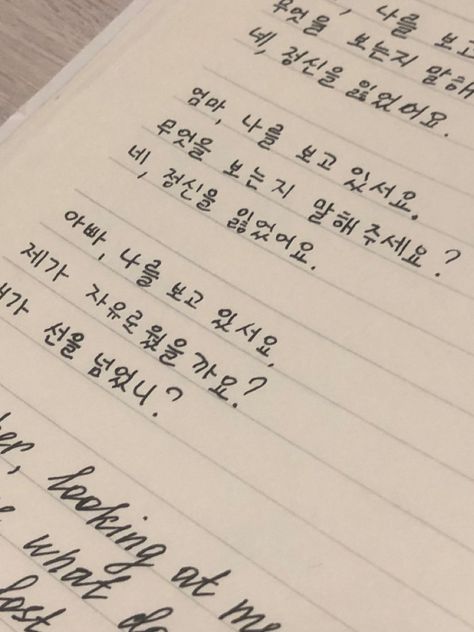 나를 보고
무엇을 보는지 말해
네, 정신을 잃었어요.
엄마, 나를 보고 있서요.
무엇을 보는지 말해주세요?
네, 정신을 잃었어요.
아빠, 나를 보고 있서요,
제가 자유로웠을가요?
선을 넘었니?
looking at me
what do
lost